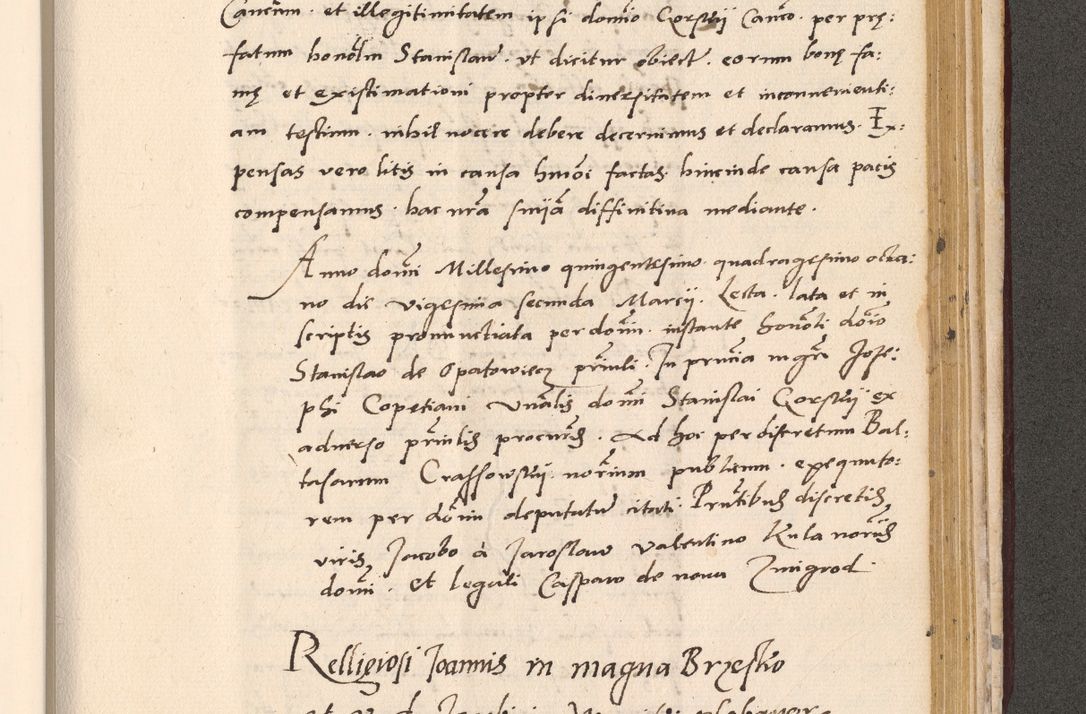 Cancrum · et illegitimitatem ipsi domino Gorskij Canco · per prę:
fatum honorlm Stanislaum · ut dicitur obiect · eorum bonę fa:
mę et existimationi propter diversitatem et inconvenienti:
am testium · nihil nocere debere decernimus et declaramus · Ex:
pensas vero litis in causa hmoi factas hincinde causa pacis
compensamus · hac nra sniia diffinitiva mediante ·
Anno domini Millesimo quingentesimo quadragesimo octa:
vo die vigesima secunda Marcij · Lecta · lata et in
scriptis pronunctiata per domin · instante honorli doio
Stanislao de Opatowiecz prinli · In pruncia mgri Jose:
phi Copetiani Unalis domini Stanislai Gorskij ex
adverso prinlis procuris · Ad hoc per discretum Bal:
tasarum Crassowskij norium publicum · exequuto:
rem per domin deputatum citati · Pruntibus discretis
viris Jacobo a Jaroslaw Valentino Kula noriis
domini · et legali Casparo de nova Zmigrod ·
Relligiosi Joannis in magna Brzesko